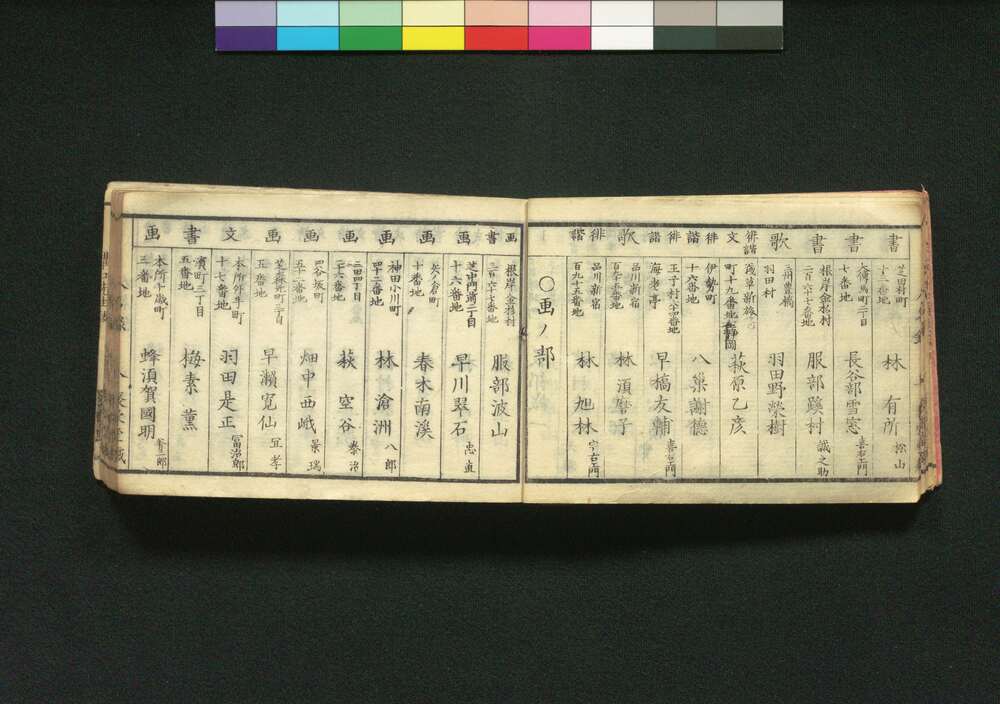 書
芝田村町
林 有所 松山
書
大傳馬町二丁目
七番地
長谷部雪窓 喜右エ門
書
根岸金杉村
二百六十七番地
服部蹊村 誠之助
歌
羽田村
羽田野榮樹
俳諧 文
浅草新旅
町十九番地
萩原乙彦
俳諧
伊勢町
十六番地
八巣謝徳
俳諧
王子村六十四番地
海老亭
早橋友輔 喜右エ門
歌
品川新宿
林 須磨子
俳諧
品川新宿
百九十五番地
林 旭林 宇右エ門
〇画ノ部
画 書
根岸金杉村
二百六十七番地
服部波山
画
芝中門前二丁目
十六番地
早川翠石 忠直
画
十番地
春木南溪
画
神田小川町
四十二番地
林 滄洲 八郎
画
二十六番地
萩 空谷 泰治
画
四谷坂町
五十二番地
畑中西岷 景瑞
画
五番地
早瀬寛仙 宜孝
文
本所外手町
十七番地
羽田是正 富治郎
書
濱町三丁目
五番地
梅素 薫
画
本所千歳町
三番地
蜂須賀國明